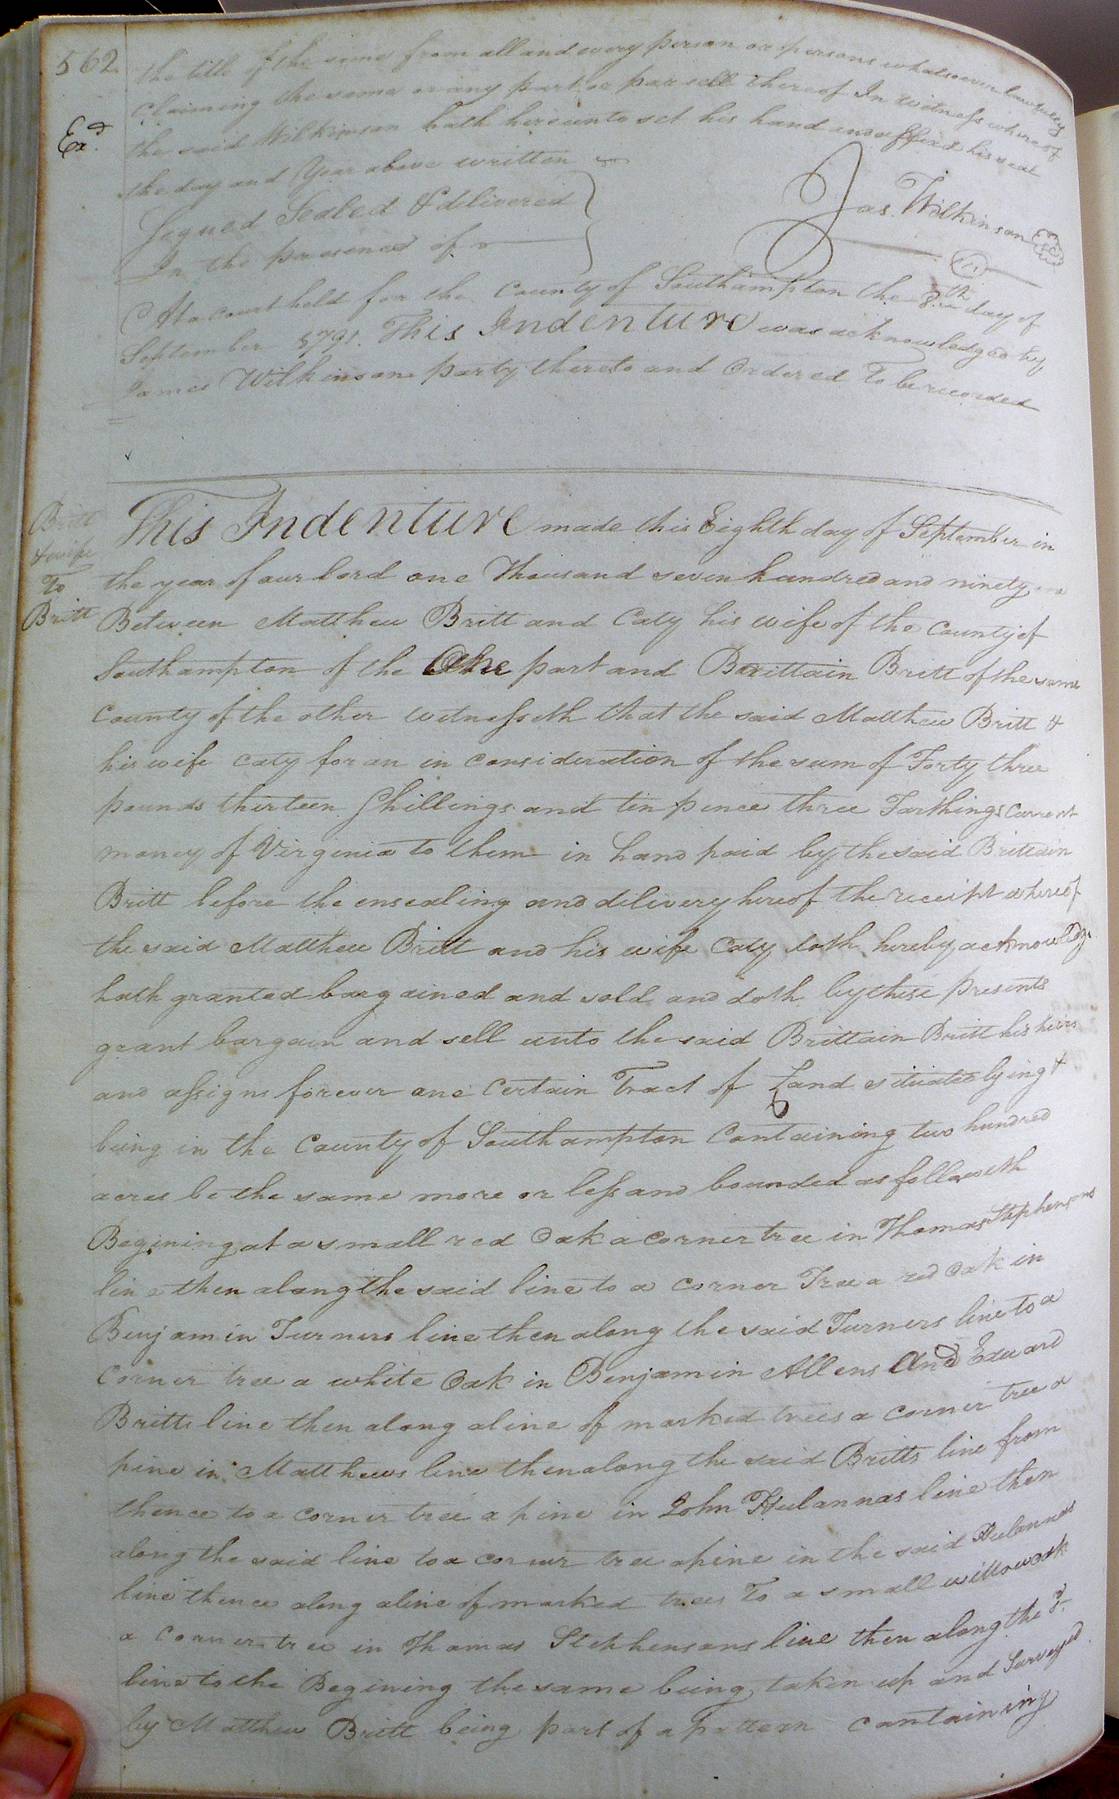 562
the title of the same from all and every person or persons whatsoever lawfully
claiming the same or any part or parsell thereof In witness whereof
Ex.d
the said Wilkinson hath hereunto set his hand and affixed his seal
the day and Year above written
Signed Sealed & delivered
In the presence of
Jas. Wilkinson
At a court held for the County of Southampton the 8.th day of
September 1791. This Indenture was acknowledged by
James Wilkinson party thereto and Ordered To be recorded
Britt
& wife
To
Britt
This Indenture made this Eighth day of September in
the year of our lord one Thousand seven hundred and ninety one
Between Matthew Britt and Caty his wife of the County of
Southampton of the One part and Brittain Britt of the same
County of the other witnesseth that the said Matthew Britt &
his wife Caty for an in consideration of the sum of Forty three
pounds thirteen Shillings and tin pence three Farthings Current
money of Virginia to them in hand paid by the said Brittain
Britt before the ensealing and delivery hereof the receipt whereof
the said Matthew Britt and his wife Caty doth hereby acknowledge
hath granted bargained and sold and doth by these presents
grant bargain and sell unto the said Brittain Britt his heirs
and assigns forever one Certain Tract of Land situated lying &
being in the County of Southampton Containing two hundred
acres be the same more or less and bounded as followeth
Begining at a small red Oak a corner tree in Thomas Stephensons
line then along the said line to a corner Tree a red Oak in
Benjamin Turners line then along the said Turners line to a
Corner tree a white Oak in Benjamin Allens And Edward
Britts line then along aline of marked trees a corner tree a
pine in Matthews line then along the said Britts line from
thence to a corner tree a pine in John Hulannas line then
along the said line to a corner tree apine in the said Hulannas
line thence along aline of marked trees To a small willow oak
a corner tree in Thomas Stehhensons line then along the sd.
line to the Begining the same being taken up and Surveyed
by Matthew Britt being part of a pattern containing